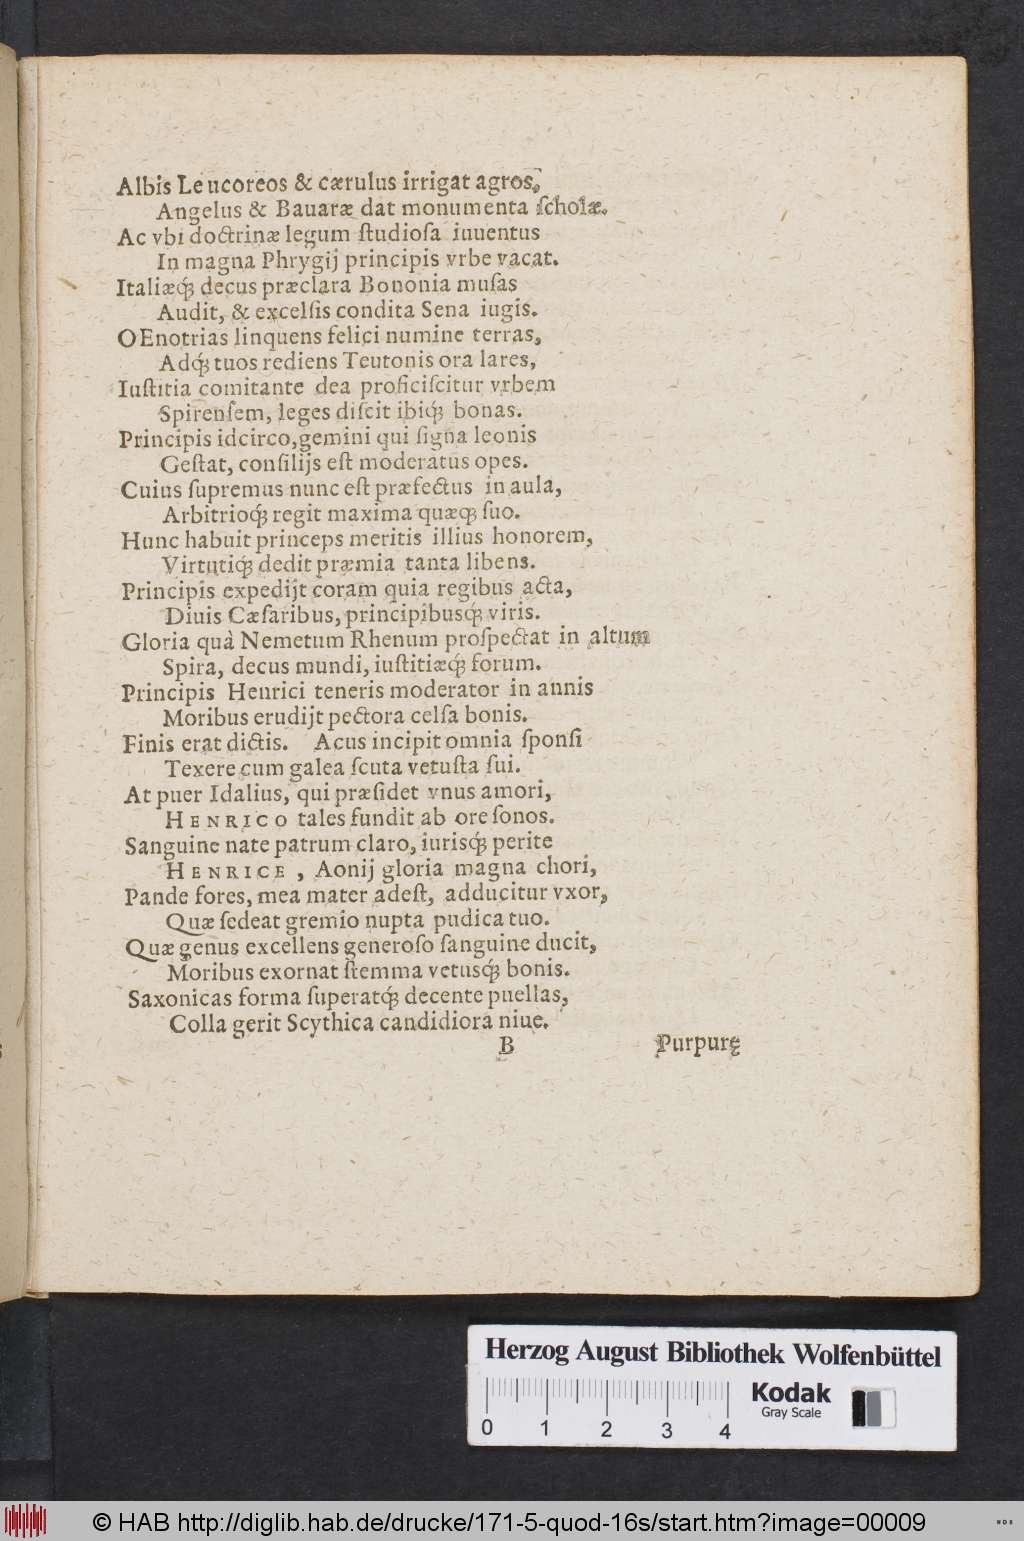 Albis Leucoreos & cærulus irrigat agros,
Angelus & Bauaræ dat monumenta ſcholæ.
Ac vbi doctrinæ legum ſtudioſa iuuentus
In magna Phrygij principis vrbe vacat.
Italiæq́ꝫ decus præclara Bononia muſas
Audit, & excelſis condita Sena iugis.
OEnotrias linquens felici numine terras,
Adq́ꝫ tuos rediens Teutonis ora lares,
Iuſtitia comitante dea proficiſcitur vrbem
Spirenſem, leges diſcit ibiq́ꝫ bonas.
Principis idcirco, gemini qui ſigna leonis
Geſtat, conſilijs eſt moderatus opes.
Cuius ſupremus nunc eſt præfectus in aula,
Arbitrioq́ꝫ regit maxima quæqꝫ ſuo.
Hunc habuit princeps meritis illius honorem,
Virtutiq́ꝫ dedit præmia tanta libens.
Principis expedijt coram quia regibus acta,
Diuis Cæſaribus, principibusq́ꝫ viris.
Gloria quà Nemetum Rhenum proſpectat in altum
Spira, decus mundi, iuſtitiæq́ꝫ forum.
Principis Henrici teneris moderator in annis
Moribus erudijt pectora celſa bonis.
Finis erat dictis. Acus incipit omnia ſponſi
Texere cum galea ſcuta vetuſta ſui.
At puer Idalius, qui præſidet vnus amori,
HENRICO tales fundit ab ore ſonos.
Sanguine nate patrum claro, iurisq́ꝫ perite
HENRICE, Aonij gloria magna chori,
Pande fores, mea mater adeſt, adducitur vxor,
Quæ ſedeat gremio nupta pudica tuo.
Quæ genus excellens generoſo ſanguine ducit,
Moribus exornat ſtemma vetusq́ꝫ bonis.
Saxonicas forma ſuperatq́ꝫ decente puellas,
Colla gerit Scythica candidiora niue.
B Purpurę
Herzog August Bibliothek Wolfenbüttel
Kodak
Gray Scale
0 1 2 3 4
© HAB http://diglib.hab.de/drucke/171-5-quod-16s/start.htm?image=00009